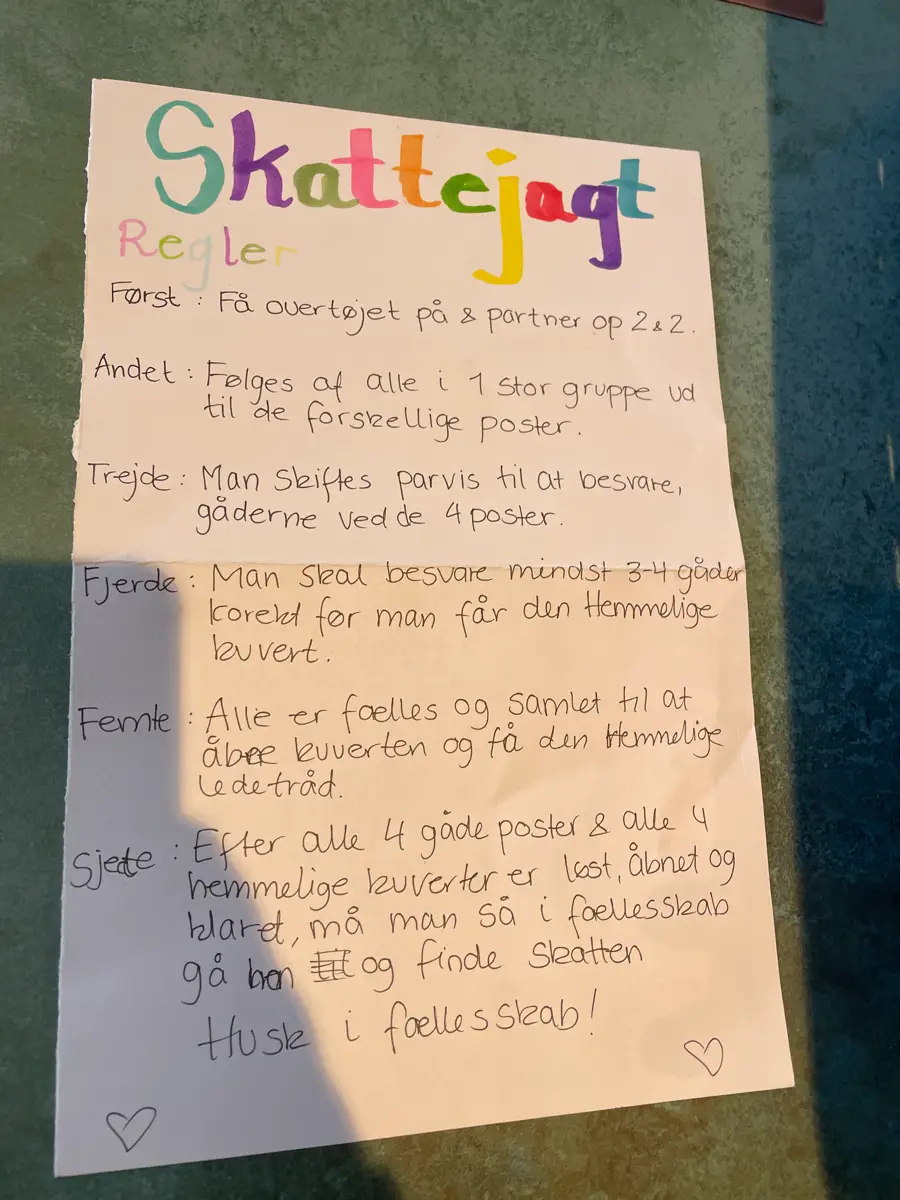 Skattejagt
Regler
Først : Få overtøjet på & partner op 2 & 2.
Andet : Følges af alle i 1 stor gruppe ud
til de forskellige poster.
Trejde : Man Skiftes parvis til at besvare,
gåderne ved de 4 poster.
Fjerde : Man skal besvare mindst 3-4 gåder
korekt før man får den Hemmelige
kuvert.
Femte : Alle er fælles og samlet til at
åbne kuverten og få den Hemmelige
Ledetråd.
Sjette : Efter alle 4 gåde poster & alle 4
hemmelige kuverter er løst, åbnet og
klaret, må man så i fællesskab
gå og finde Skatten
Husk i fællesskab!